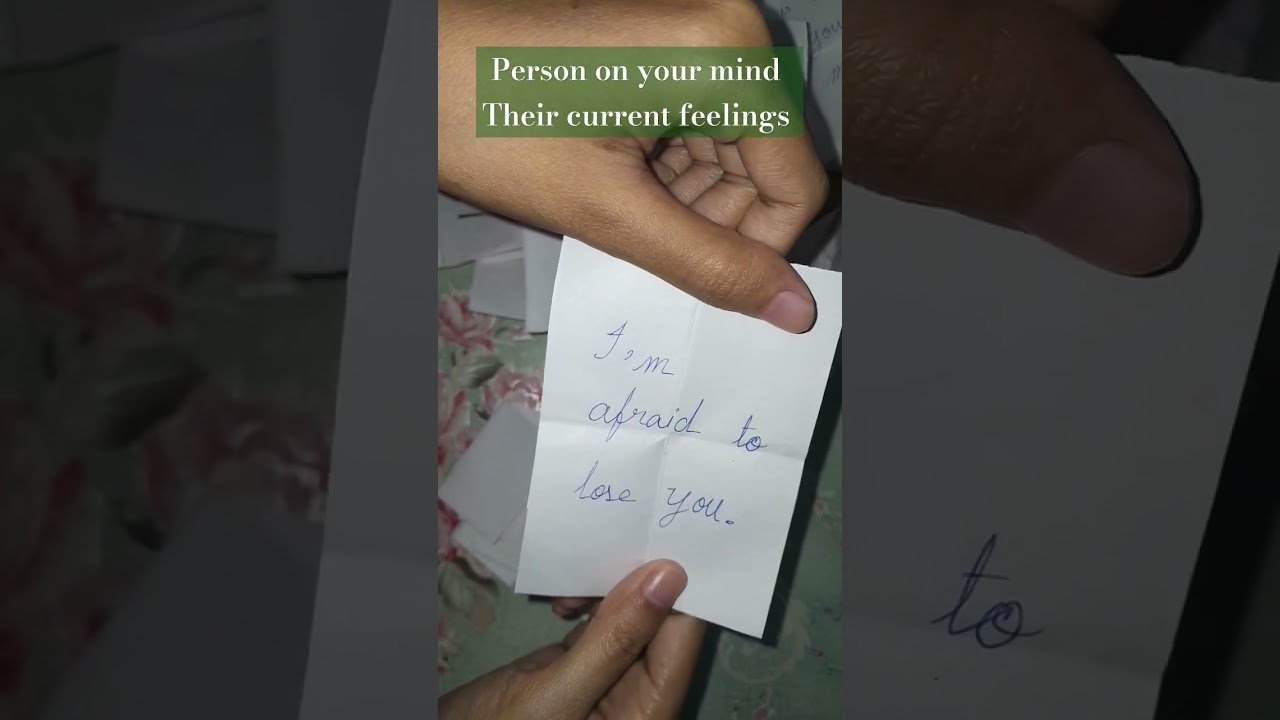 Person on your mind
Their current feelings
you
m
I,m
afraid to
lose you.
to